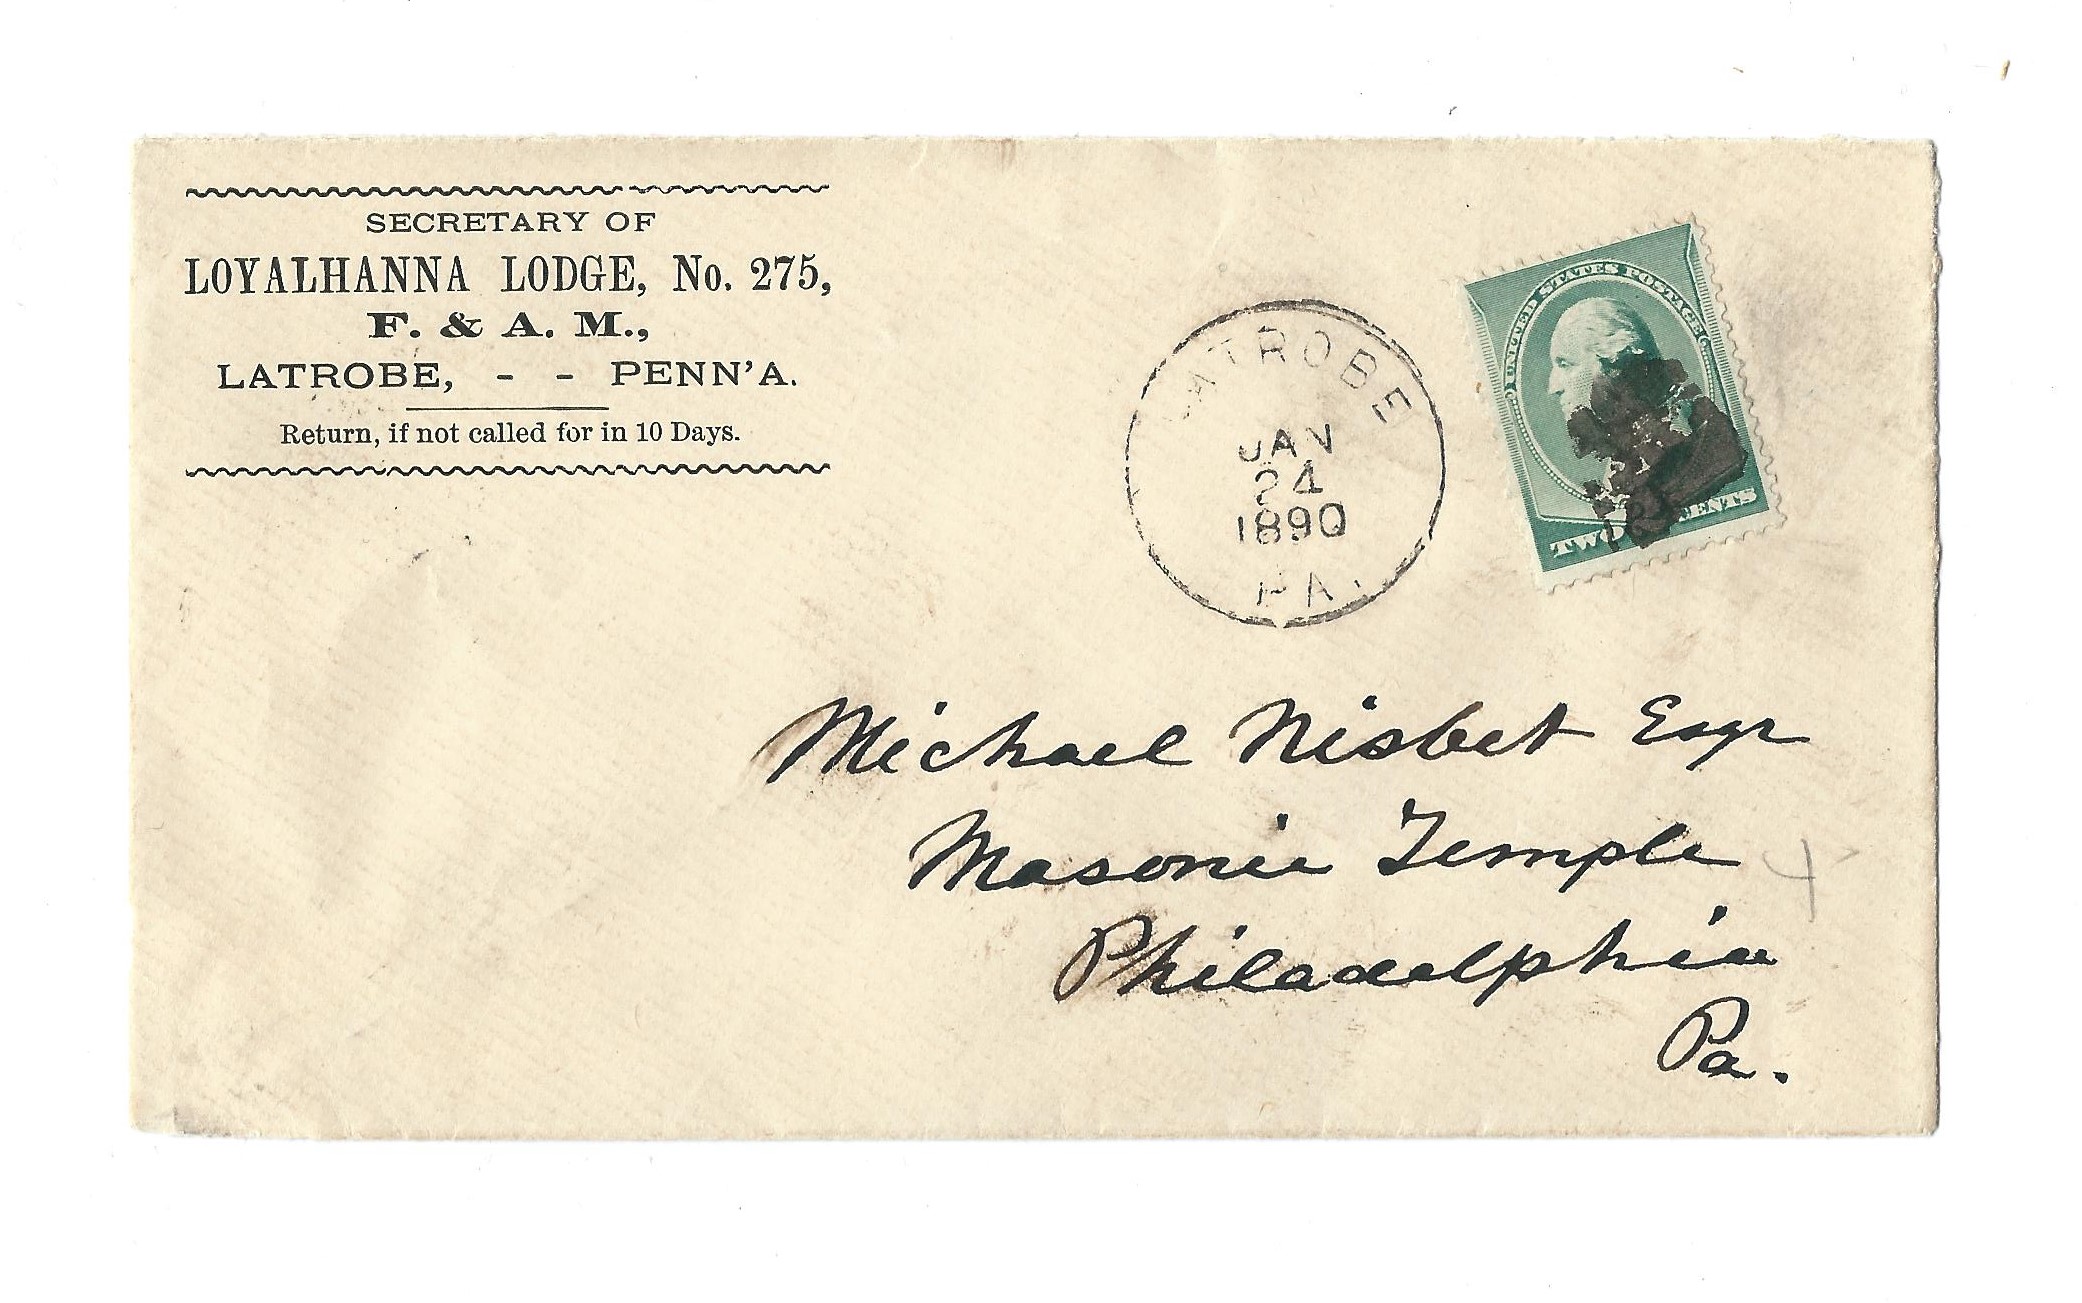 SECRETARY OF
LOYALHANNA LODGE, No. 275,
F. & A. M.,
LATROBE, - - PENN'A.
Return, if not called for in 10 Days.
LATROBE
JAN
24
1890
PA.
UNITED STATES POSTAGE
TWO CENTS
Michael Nisbet Esqr
Masonic Temple
Philadelphia
Pa.